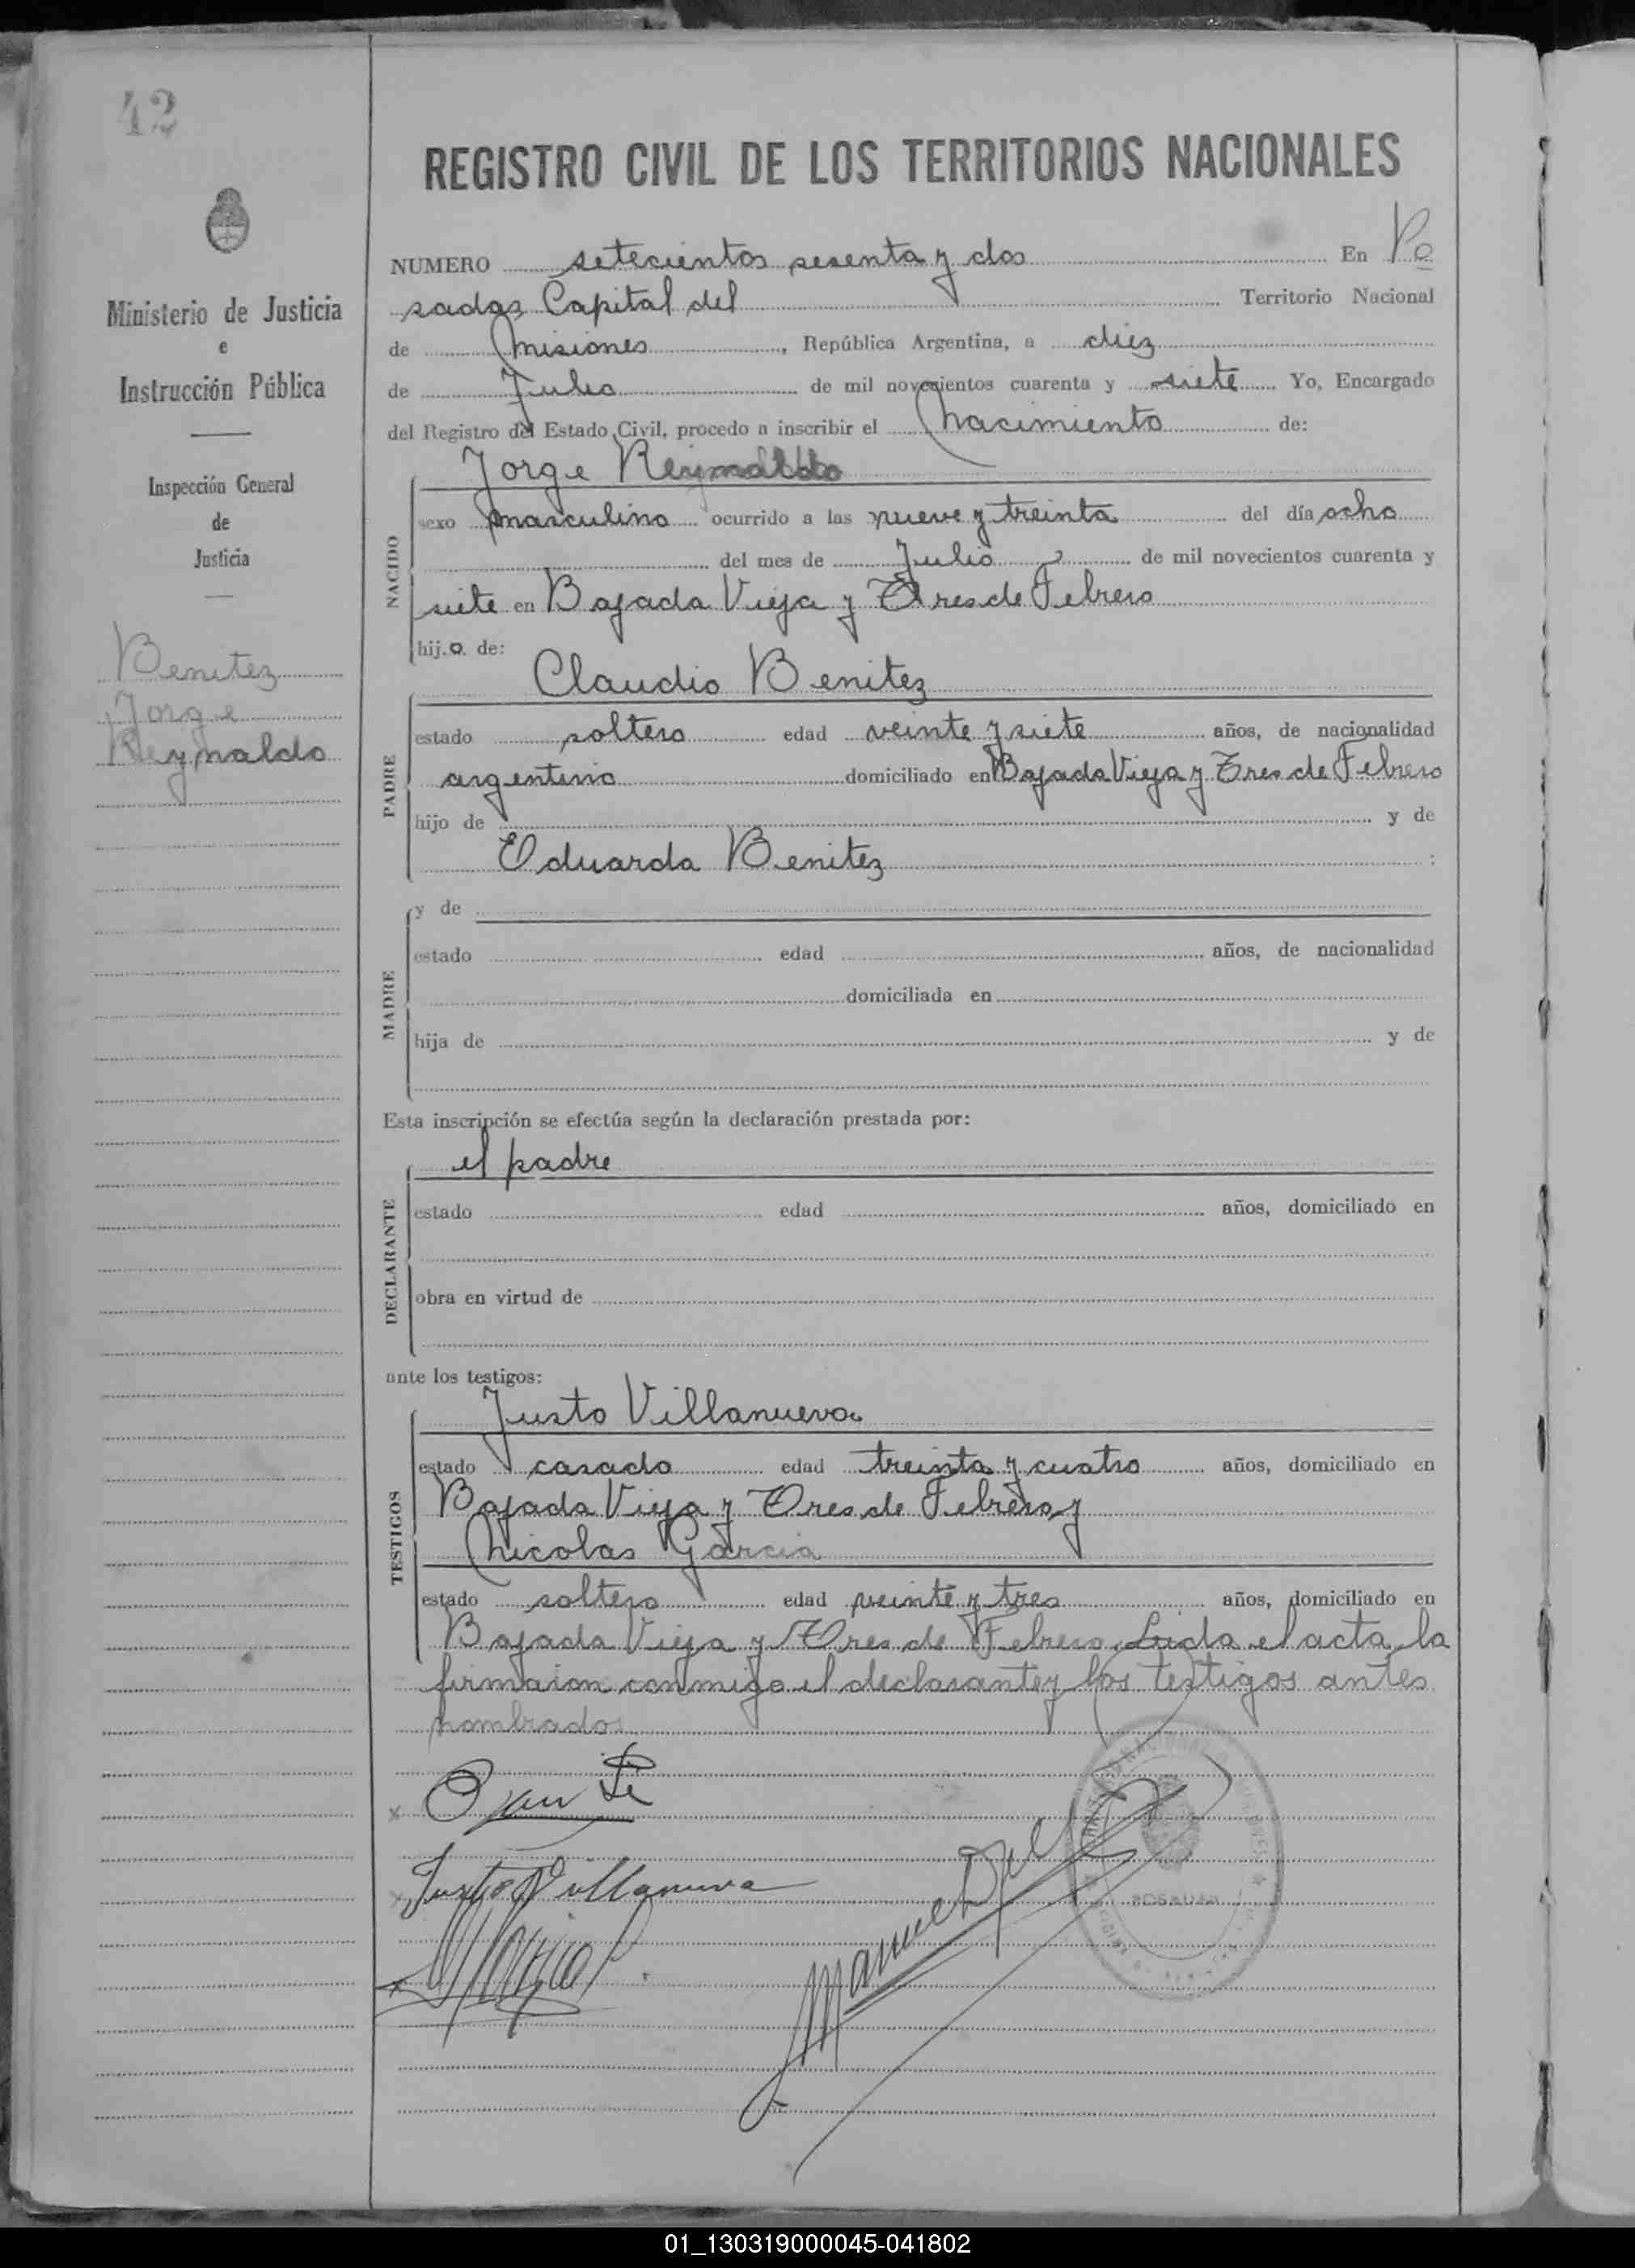 42
REGISTRO CIVIL DE LOS TERRITORIOS NACIONALES
Ministerio de Justicia
e
Instrucción Pública
Inspección General
de
Justicia
Benitez
Jorge
Reynaldo
NUMERO setecientos sesenta y dos En Po
sadas, Capital del Territorio Nacional
de Misiones, República Argentina, a diez
de Julio de mil novecientos cuarenta y siete Yo, Encargado
del Registro del Estado Civil, procedo a inscribir el Nacimiento de:
Jorge Reynaldo
NACIDO
sexo masculino ocurrido a las nueve y treinta del día ocho
del mes de Julio de mil novecientos cuarenta y
siete en Bajada Vieja y Tres de Febrero
hij.o. de:
Claudio Benitez
PADRE
estado soltero edad veinte y siete años, de nacionalidad
argentino domiciliado en Bajada Vieja y Tres de Febrero
hijo de y de
Eduarda Benitez :
MADRE
y de
estado edad años, de nacionalidad
domiciliada en
hija de y de
Esta inscripción se efectúa según la declaración prestada por:
el padre
DECLARANTE
estado edad años, domiciliado en
obra en virtud de
ante los testigos:
Justo Villanueva
TESTIGOS
estado casado edad treinta y cuatro años, domiciliado en
Bajada Vieja y Tres de Febrero y
Nicolas Garcia
estado soltero edad veinte y tres años, domiciliado en
Bajada Vieja y Tres de Febrero. Leida el acta, la
firmaron conmigo el declarante y los testigos antes
nombrados
Justo Villanueva
Manuel
POSADAS
01_130319000045-041802